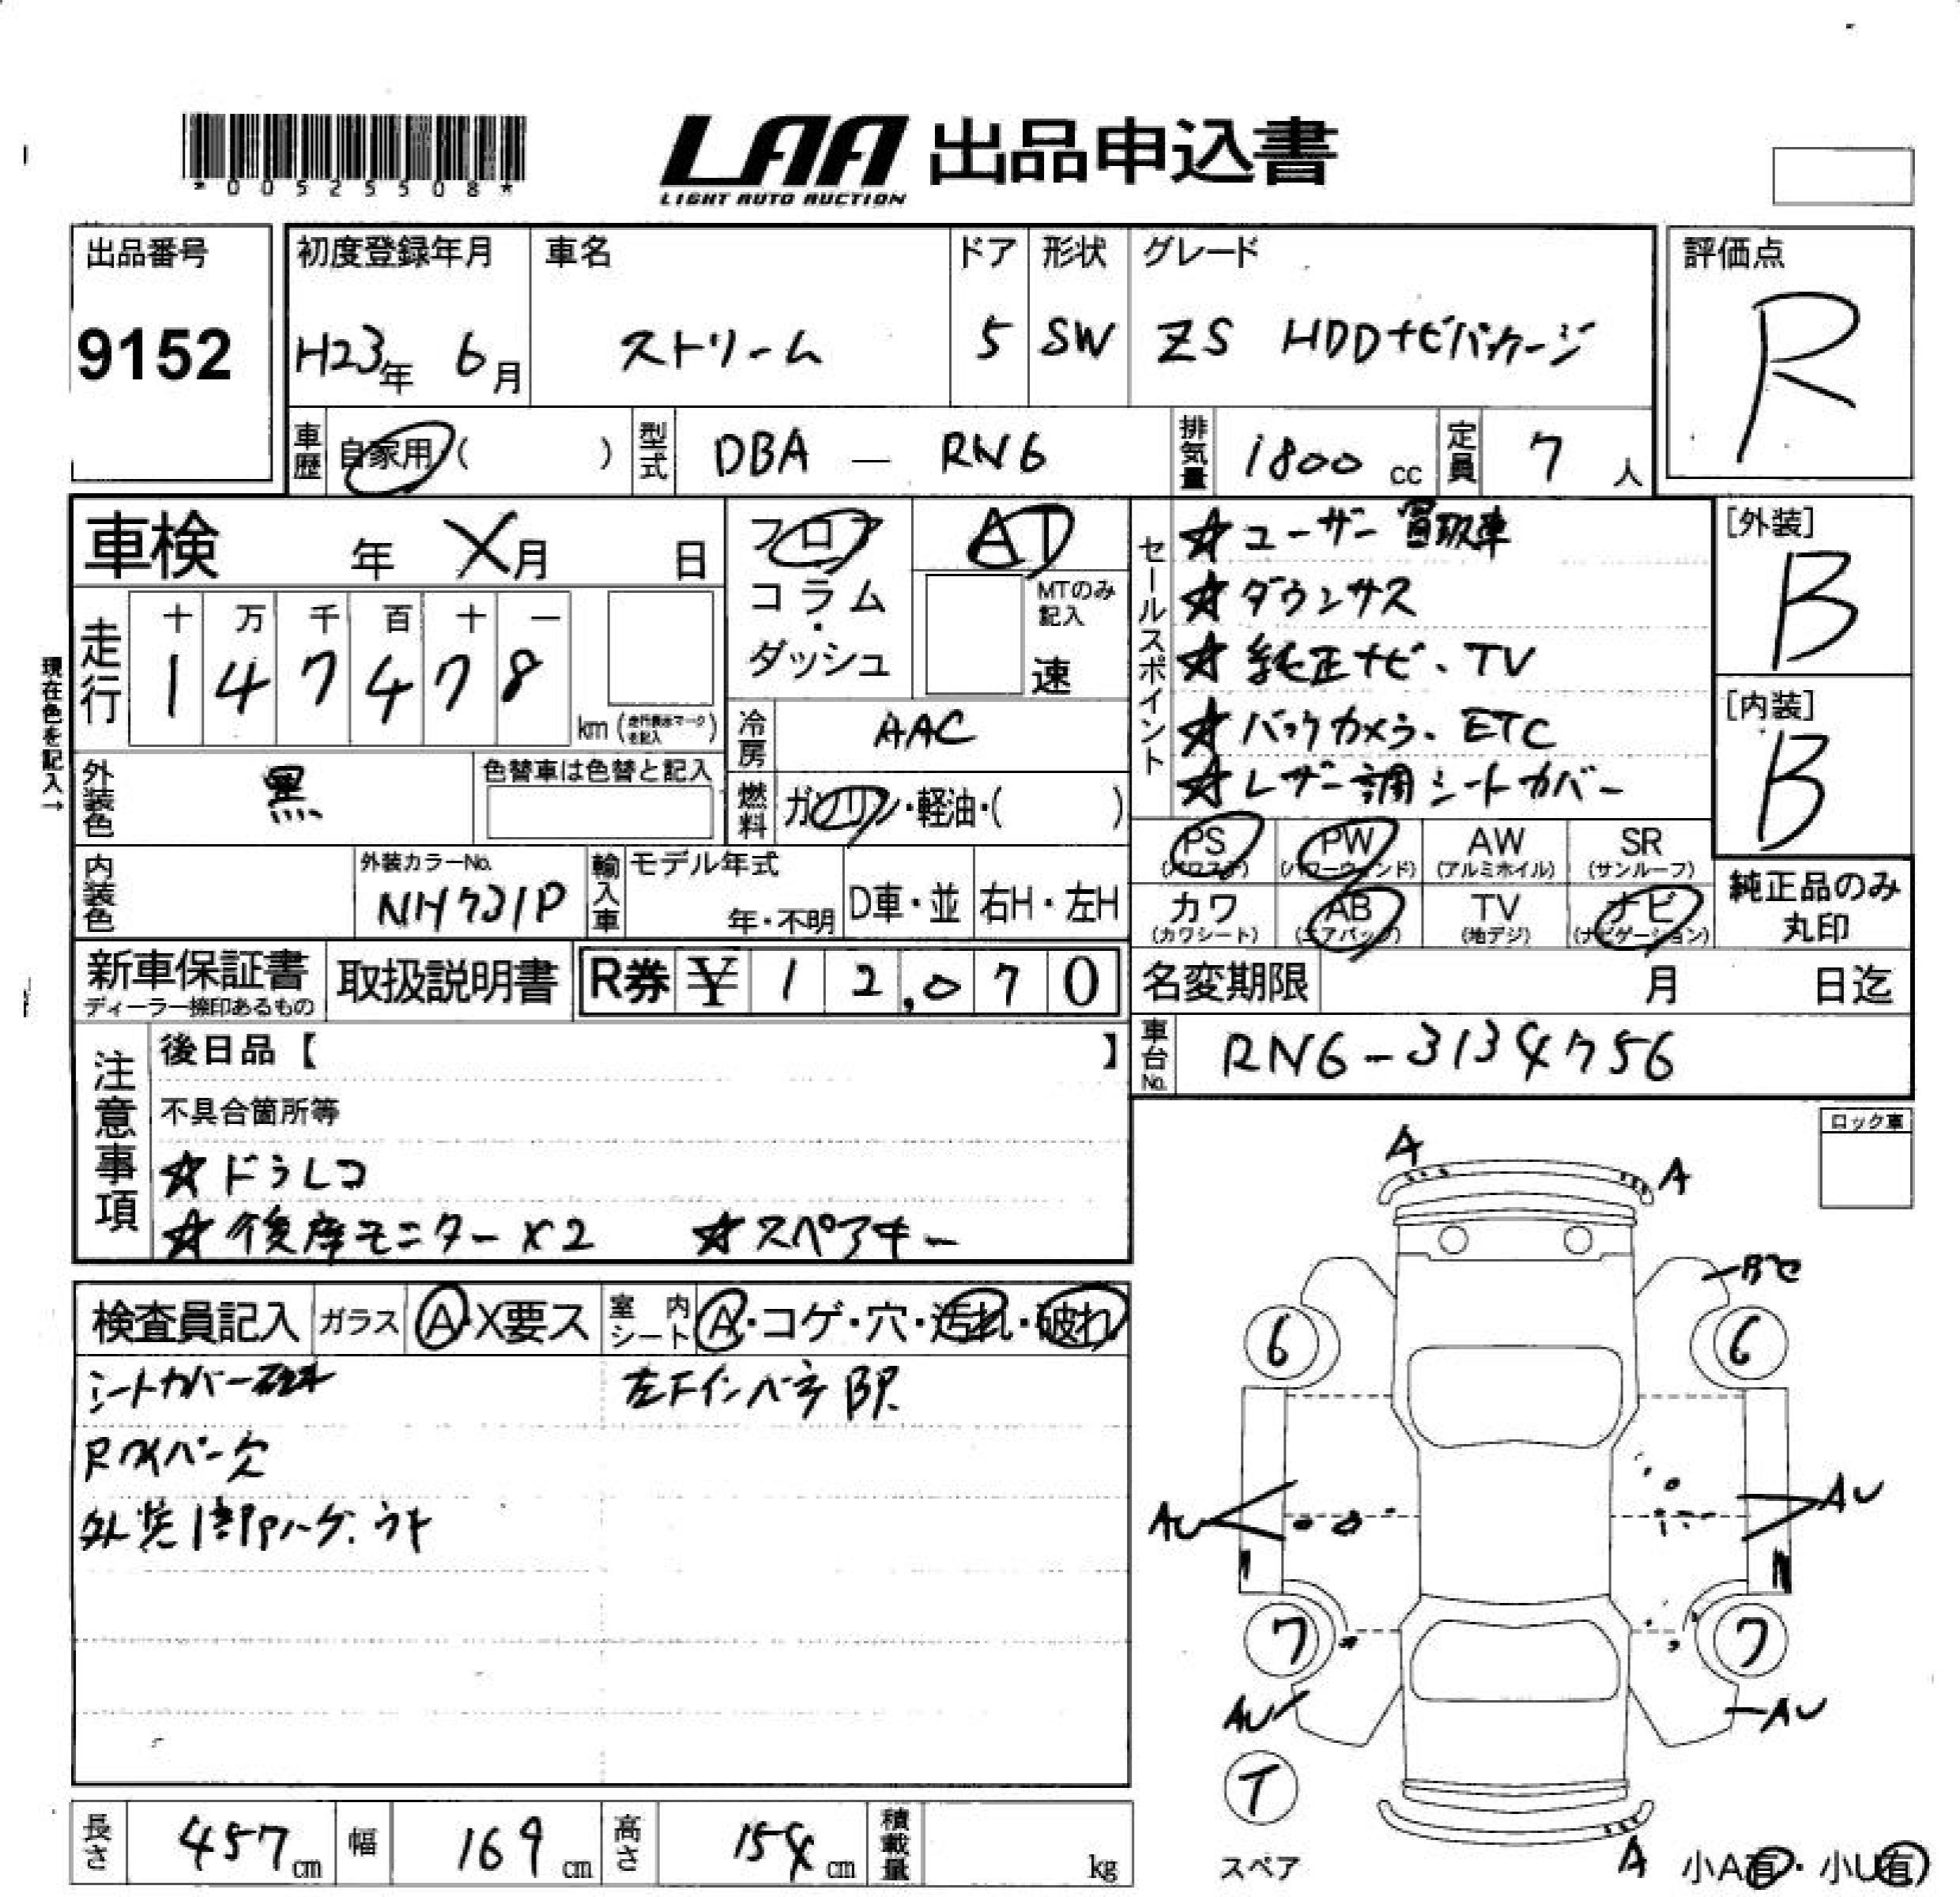 *00525508*
LAA 出品申込書
LIGHT AUTO AUCTION
出品番号
9152
初度登録年月 車名 ドア 形状 グレード
H23年 6月 ストリーム 5 SW ZS HDDナビパッケージ
評価点
R
車歴 自家用 ( ) 型式 DBA - RN6 排気量 1800 cc 定員 7 人
車検 年 X月 日
フロア
コラム
・
ダッシュ
AT
MTのみ
記入
速
走行 十 万 千 百 十 一
1 4 7 4 7 8
km (走行表示マークを記入)
現在色を記入→
外装色 黒 色替車は色替と記入
冷房 AAC
燃料 ガソリン・軽油・( )
セールスポイント
☆ユーザー買取車
☆ダウンサス
☆純正ナビ、TV
☆バックカメラ、ETC
☆レザー調シートカバー
[外装]
B
[内装]
B
内装色 外装カラーNo. NH731P
輸入車 モデル年式 年・不明 D車・並 右H・左H
PS (パワステ) PW (パワーウィンド) AW (アルミホイル) SR (サンルーフ)
カワ (カワシート) AB (エアバッグ) TV (地デジ) ナビ (ナビゲーション)
純正品のみ
丸印
新車保証書 ディーラー捺印あるもの 取扱説明書 R券 ¥ 1 2,0 7 0
名変期限 月 日迄
車台No. RN6-3134756
注意事項
後日品【 】
不具合箇所等
☆ドラレコ
☆後席モニターX2 ☆スペアキー
ロック車
検査員記入 ガラス A・X要ス 室内シート A・コゲ・穴・汚れ・破れ
シートカバー破れ
Rワイパー欠
外装1部Pハゲ、ウキ
左Fインパネ BP.
A
A
6
6
AU
AU
7
7
AU
AU
T
スペア
A
小A有・小U有
長さ 457cm 幅 169cm 高さ 154cm 積載量 kg